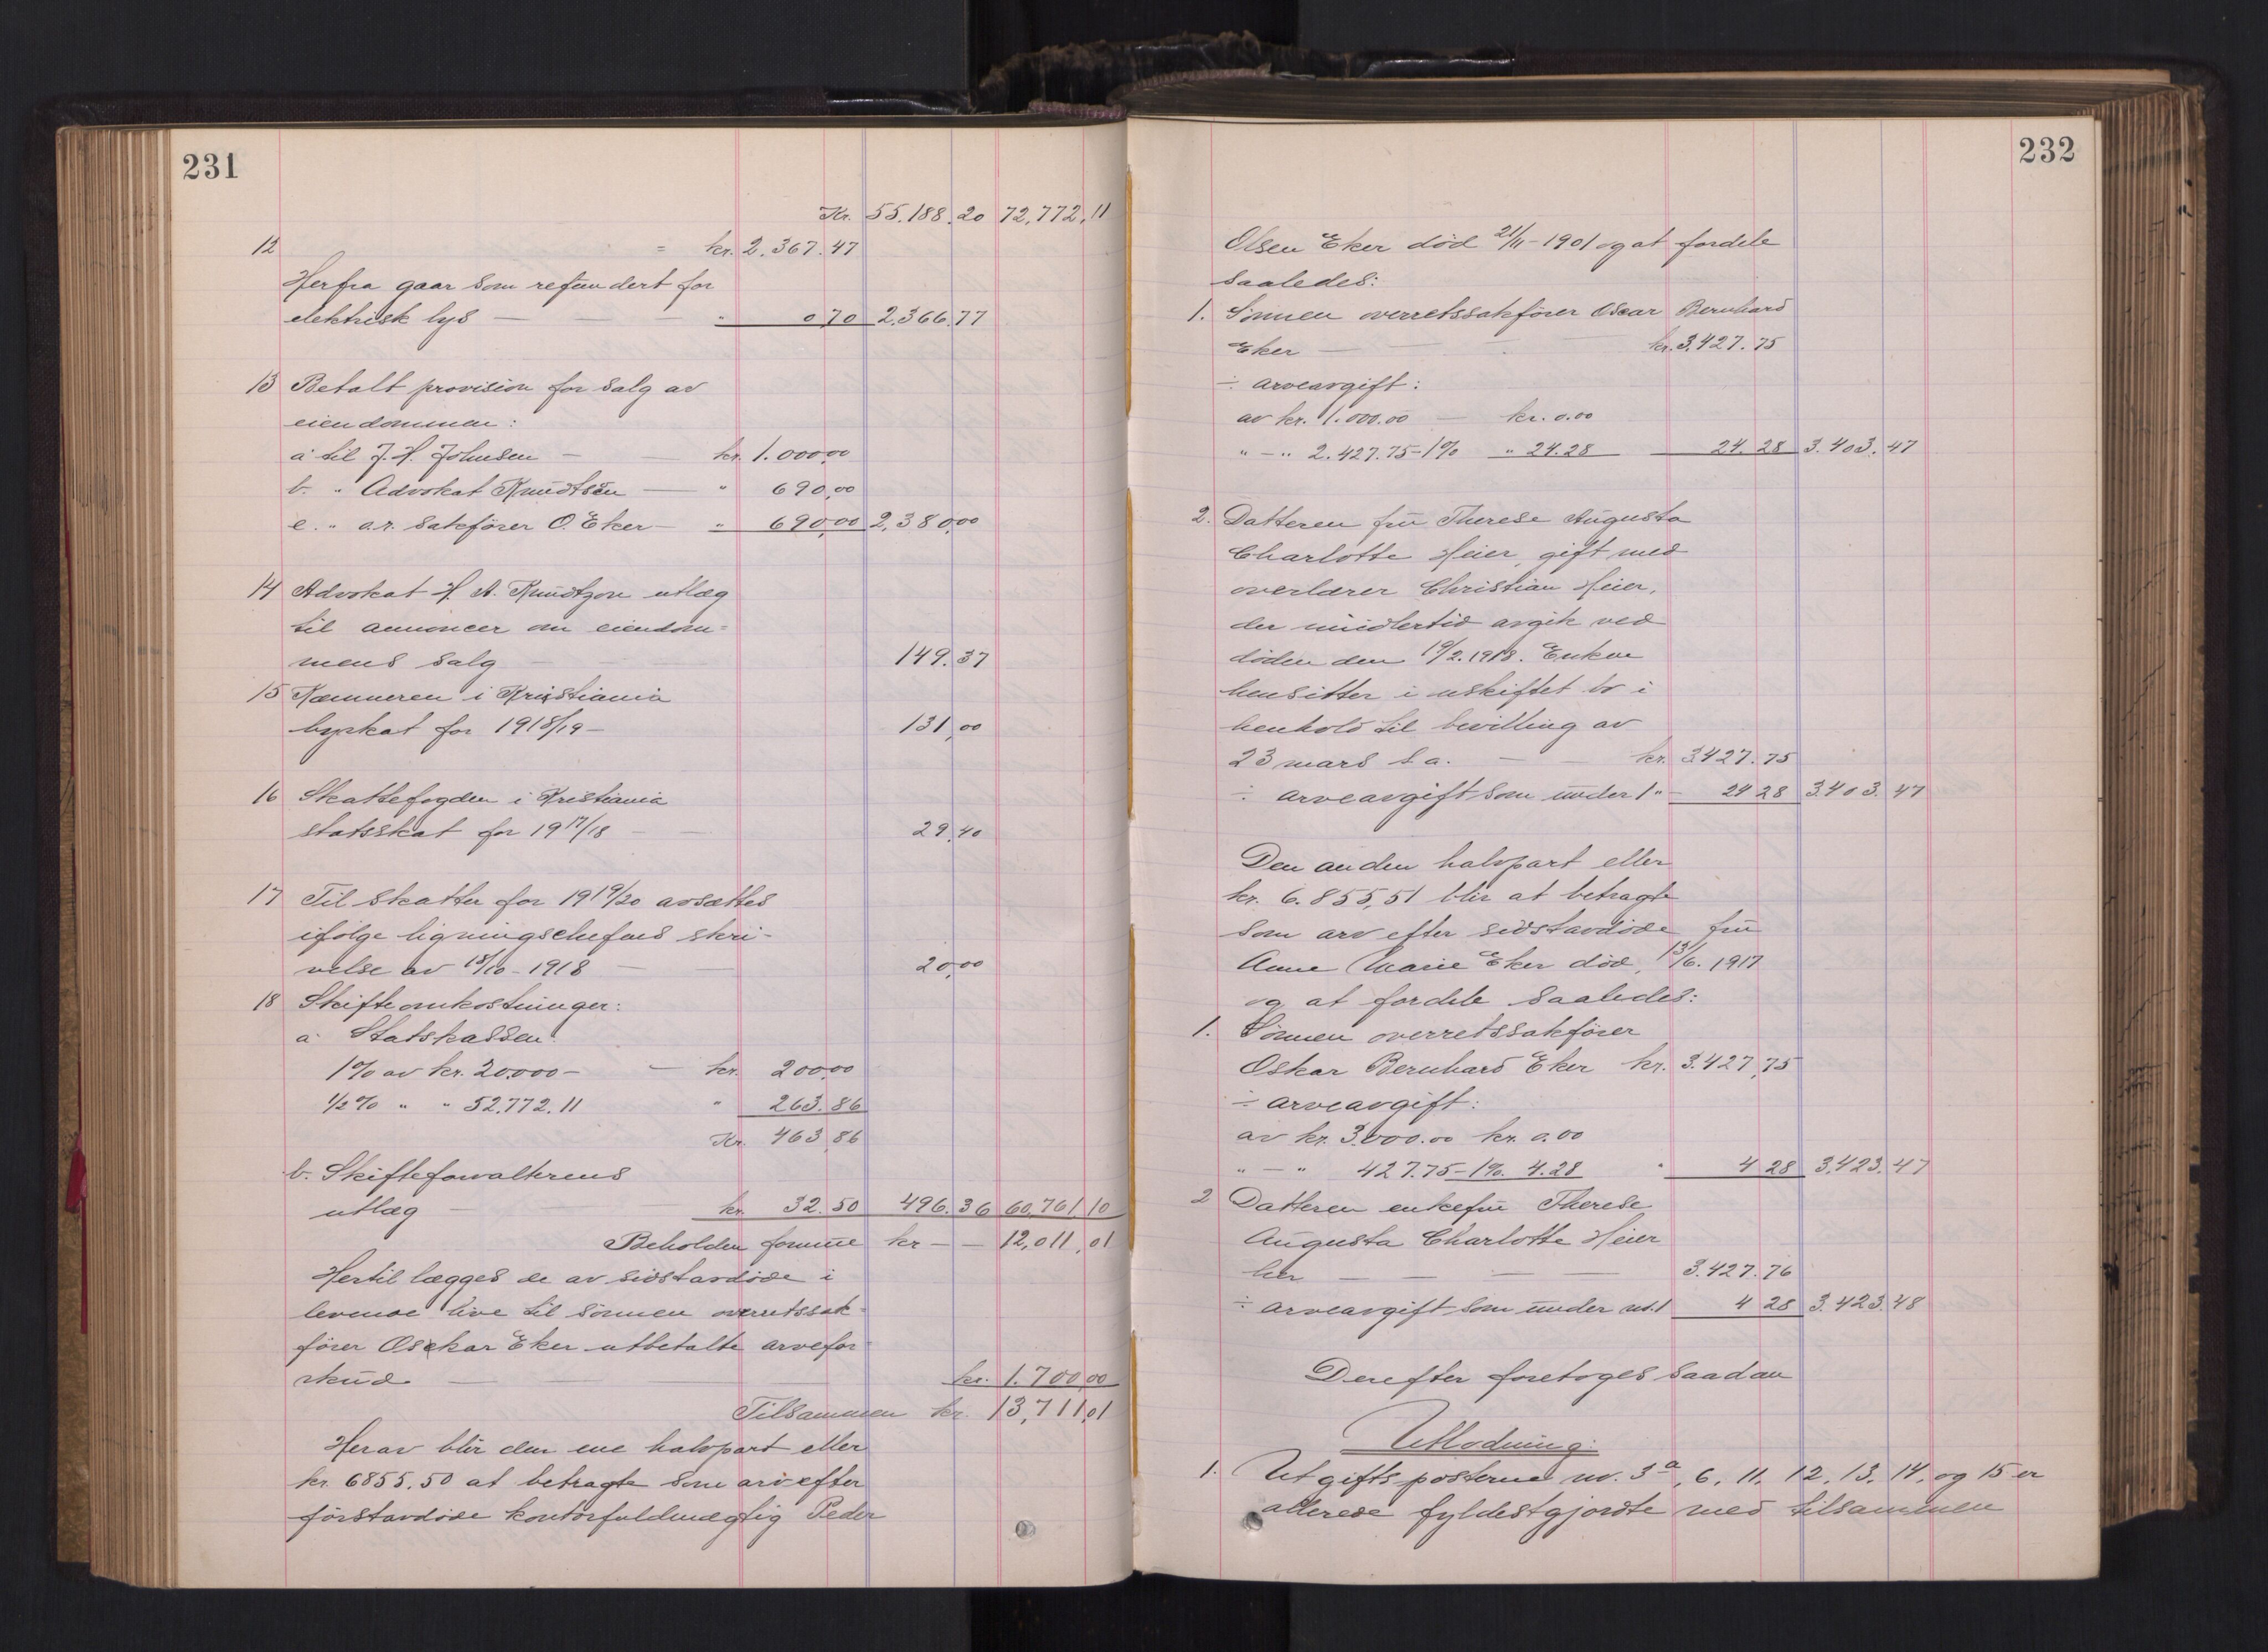 231
Kr. 55.188.20 72,772,11
12 = kr. 2.367.47
Herfra gaar som refundert for
elektrisk lys — — — " 0 70 2,366.77
13 Betalt provision for salg av
eiendommen:
a til J. H. Johnsen — — kr. 1.000,00
b. " Advokat Knudtsen — " 690,00
c. " o.r. sakfører O. Eker — " 690,00 2,380,00
14 Advokat H. A. Knudtzon utlæg
til annoncer om eiendom=
mens salg — — 149.37
15 Kæmneren i Kristiania
byskat for 1918/19 — 131,00
16 Skattefogden i Kristiania
statsskat for 1917/18 — — 29,40
17 Til skatter for 1919/20 avsættes
ifølge ligningschefens skri-
velse av 18/10 - 1918 — — 20,00
18 Skifteomkostninger:
a Statskassen:
1% av kr. 20.000 — — kr. 200,00
1/2% " " 52.772.11 " 263.86
Kr. 463,86
b. Skifteforvalterens
utlæg — — kr. 32.50 496.36 60,761,10
Beholden formue kr — — 12,011,01
Hertil lægges de av sidstavdøde i
levende live til sønnen overretssak=
fører Osckar Eker utbetalte arvefor=
skud — — — kr. 1.700,00
Tilsammen kr. 13,711,01
Herav blir den ene halvpart eller
kr. 6855.50 at betragte som arv efter
førstavdøde kontorfuldmægtig Peder
232
Olsen Eker død 21/11 - 1901 og at fordele
saaledes:
1. Sønnen overretssakfører Oscar Bernhard
Eker — — kr. 3,427.75
÷ arveavgift:
av kr. 1.000.00 — kr. 0.00
" — " 2.427.75 - 1% " 24.28 — 24.28 3.403.47
2. Datteren fru Therese Augusta
Charlotte Heier, gift med
overlærer Christian Heier,
der imidlertid avgik ved
døden den 19/2. 1918. Enken
hensitter i uskiftet bo i
henhold til bevilling av
23 mars s.a. — — kr. 3427.75
÷ arveavgift som under 1 " — 24 28 3.403.47
Den anden halvpart eller
kr. 6.855,51 blir at betragte
som arv efter sidstavdøde fru
Anne Marie Eker død, 13/6. 1917
og at fordele saaledes:
1. Sønnen overretssakfører
Oskar Bernhard Eker kr. 3.427,75
÷ arveavgift:
av kr. 3.000.00 kr. 0.00
" — " 427.75 - 1%. 4.28 " 4 28 3.423.47
2 Datteren enkefru Therese
Augusta Charlotte Heier
her — — — — 3.427.76
÷ arveavgift som under nr. 1 4 28 3.423.48
Derefter foretoges saadan
Utlodning:
1. Utgiftsposterne nr. 3a, 6, 11, 12, 13, 14, og 15 er
allerede fyldestgjordte med tilsammen